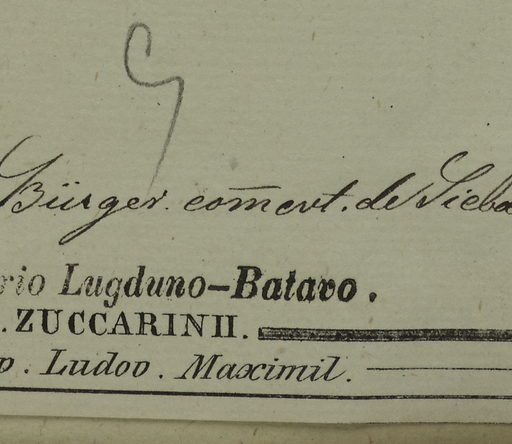 Bürger. com̅ert. de Siebo
rio Lugduno-Batavo.
. ZUCCARINII.
p. Ludov. Maximil.